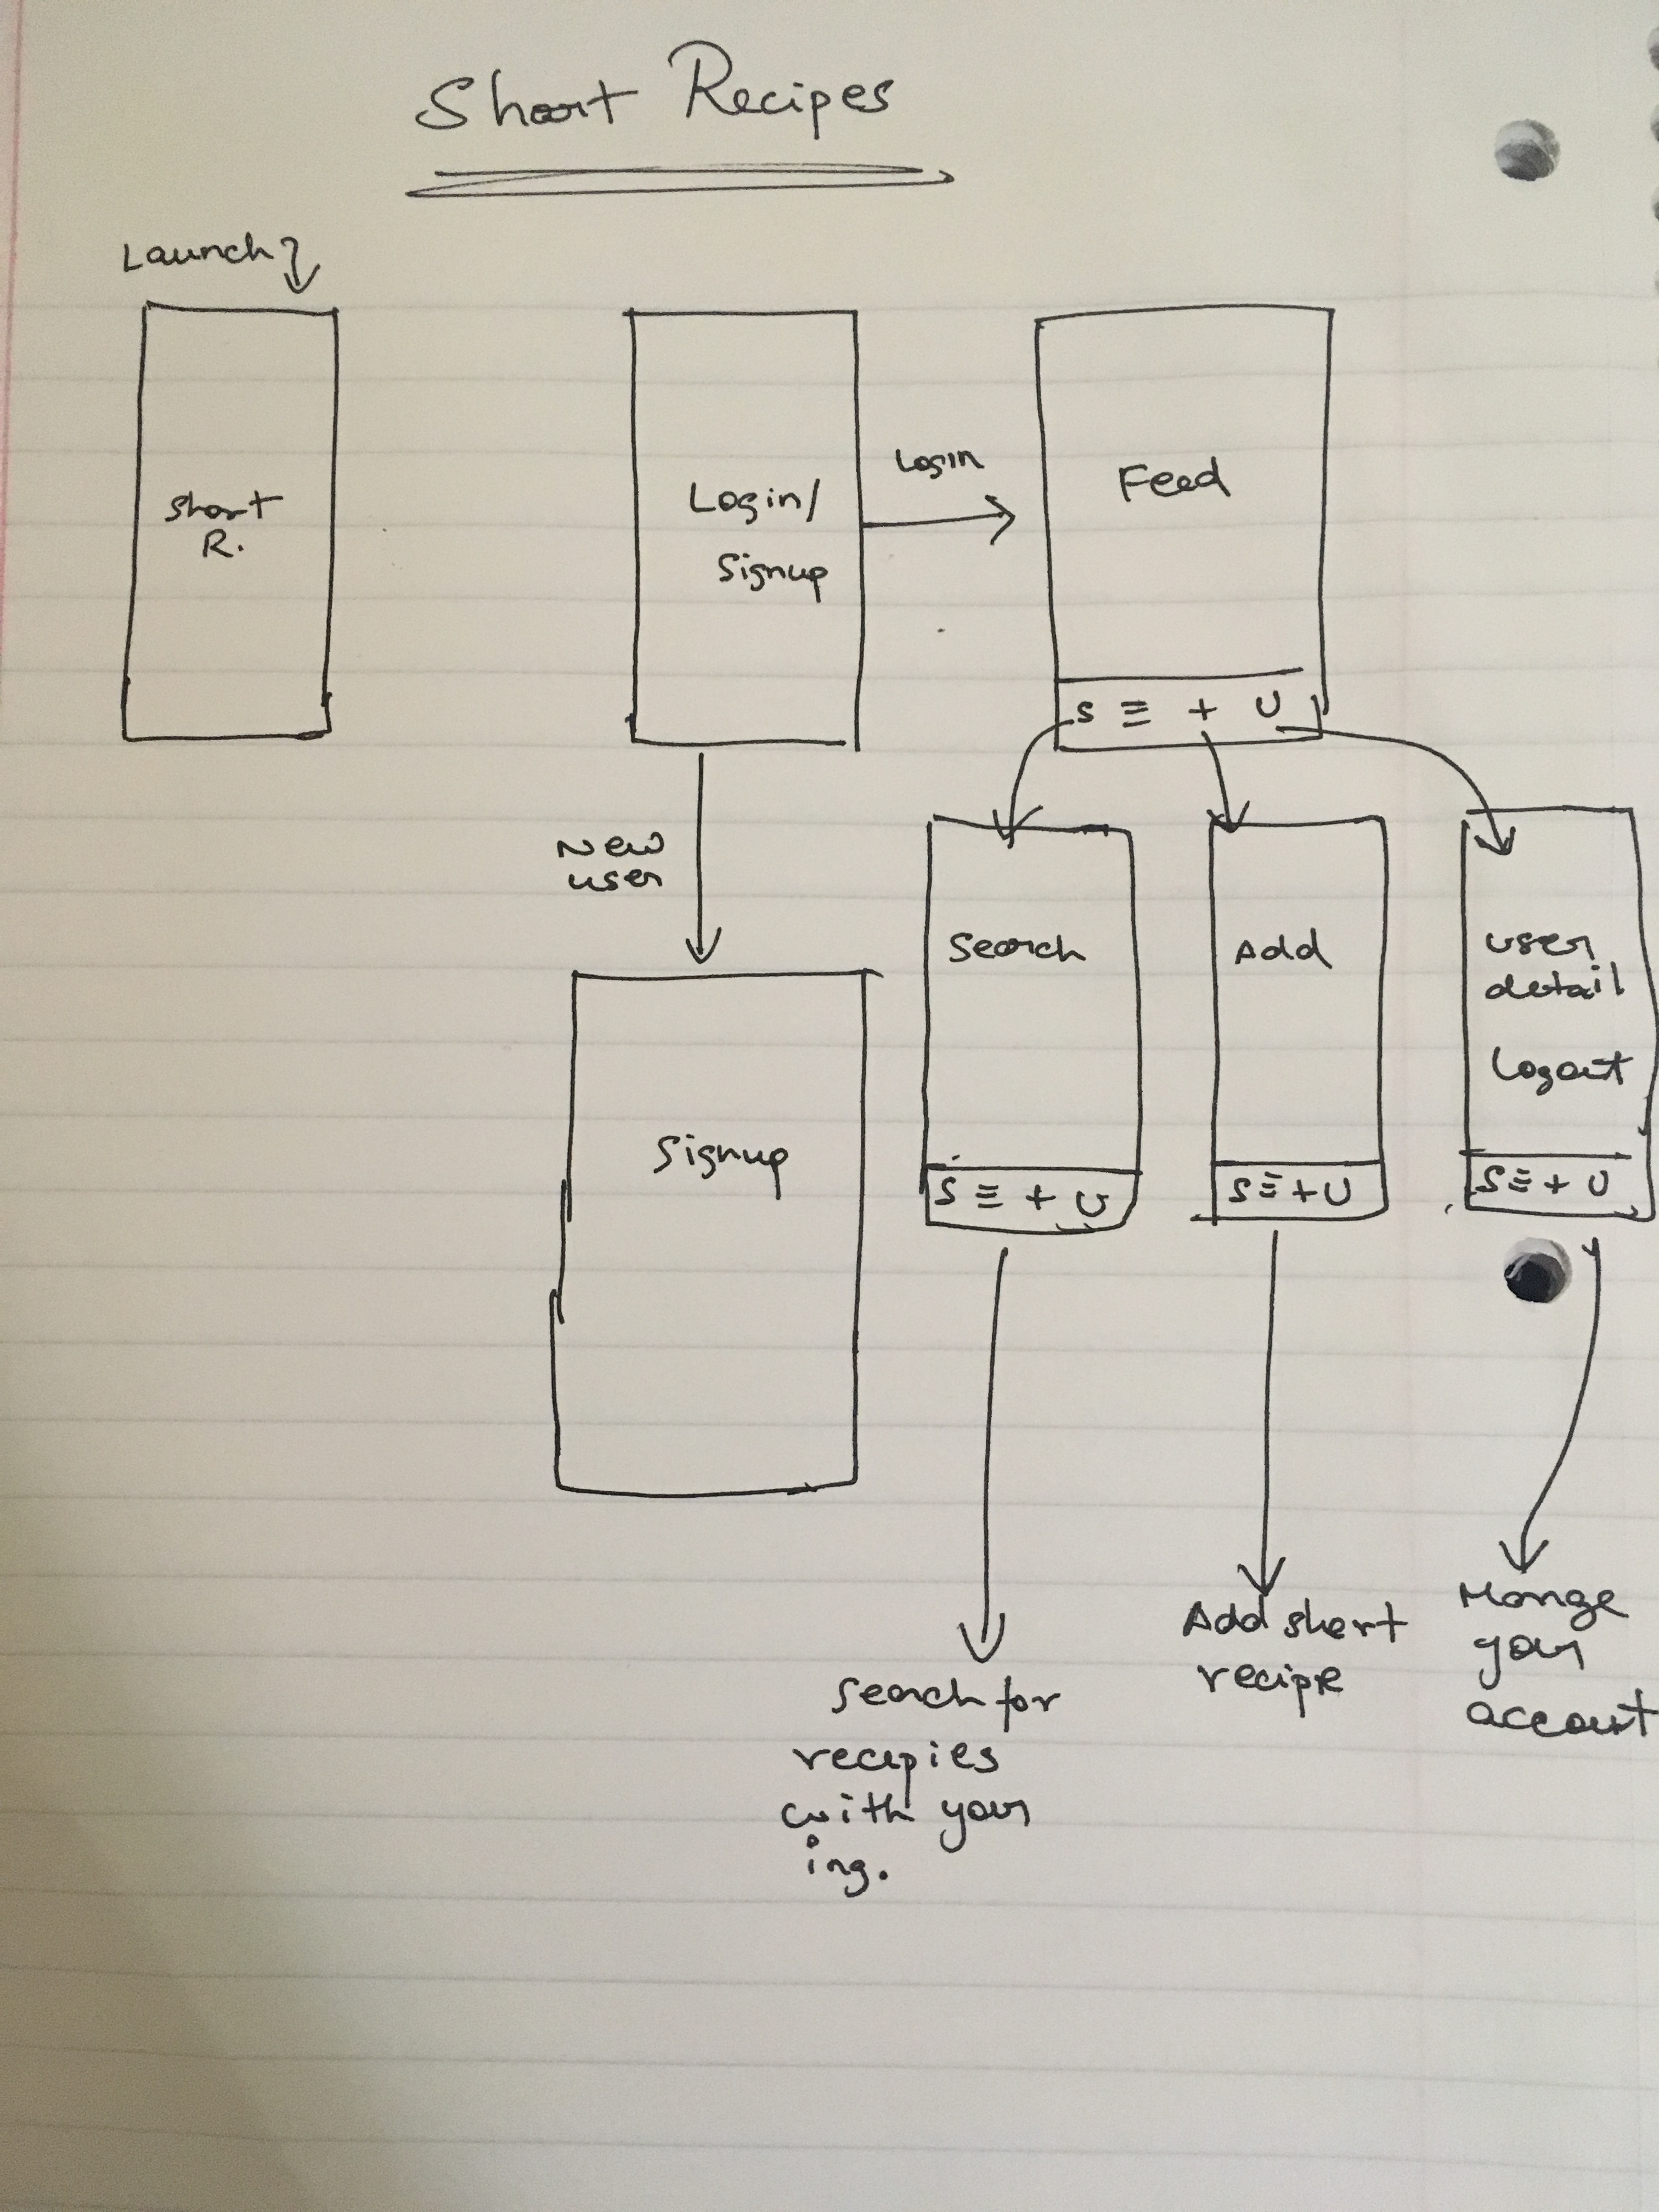 Short Recipes
Launch
Short
R.
Login/
Signup
Login
Feed
S ≡ + U
New
user
Signup
Search
S ≡ + U
Add
S ≡ + U
user
detail
Logout
S ≡ + U
Search for
recipies
with your
ing.
Add short
recipe
Mange
your
account